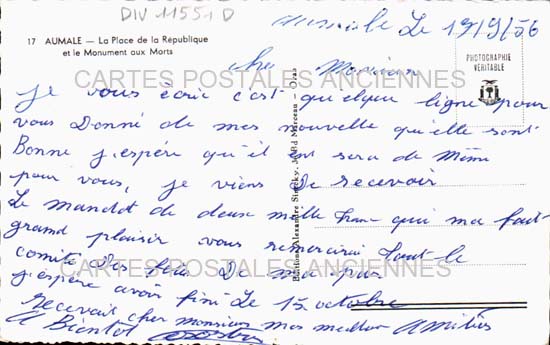 DIV 11551 D
Aumale Le 19/9/56
17 AUMALE — La Place de la République
et le Monument aux Morts
PHOTOGRAPHIE
VÉRITABLE
Cher Monsieur
CARTES POSTALES ANCIENNES
Je vous écrie c'est quelque ligne pour
vous Donné de mes nouvelle qu'elle sont
Bonne j'espére qu'il en sera de Même
pour vous, je viens De recevoir
Le mandat de deux mille franc qui ma fait
grand plaisir vous remercirai tout le
comité Des fêtes De ma part
CARTES POSTALES ANCIENNES
j'éspère avoir fini Le 15 octobre
Recevait cher monsieur mes meilleur Amitiés
A Bientot
Editions Alexandre Sirecky, Marceau - Oran